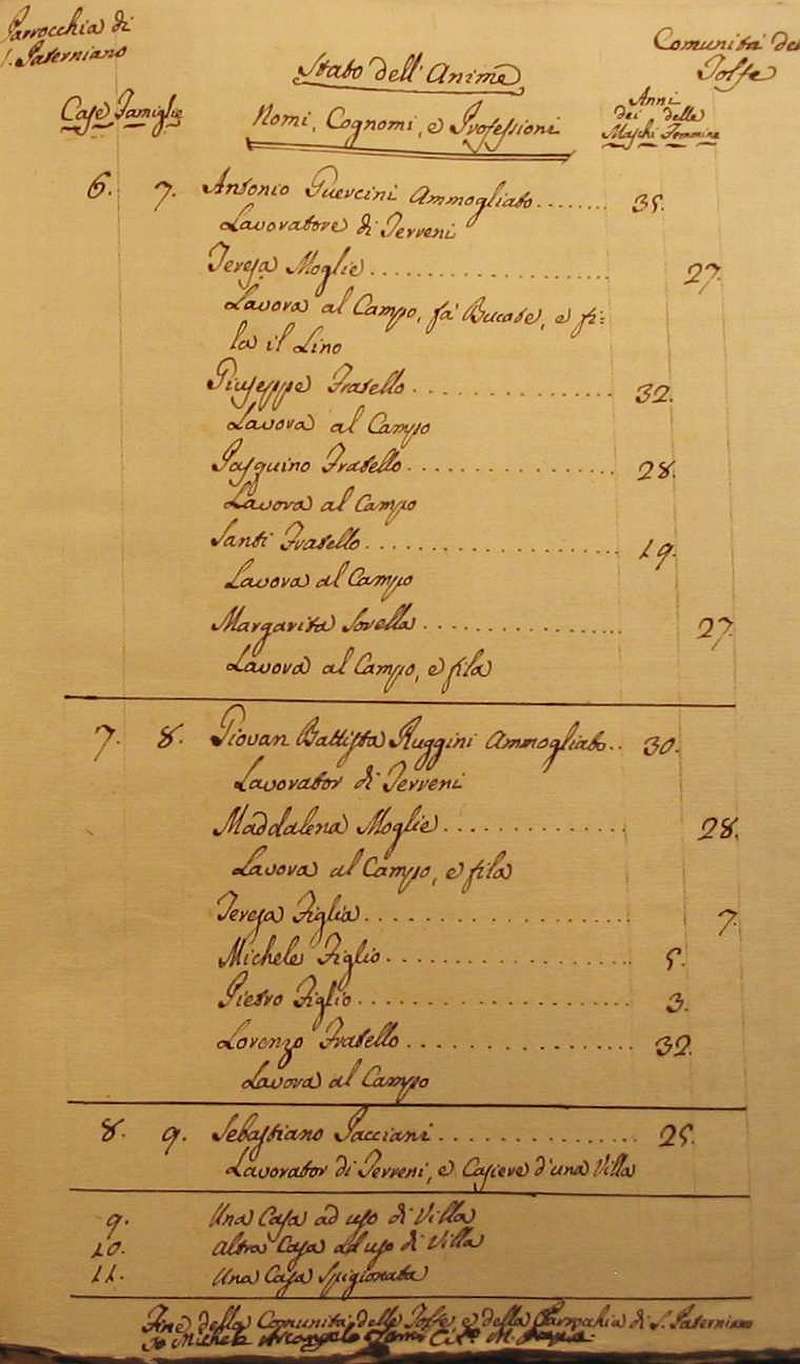 Parrocchia di
S. Paterniano
Comunità de
Tolfe
Stato dell'Anime
Case Famiglie
Nomi, Cognomi, e Professioni
Anni
dei delle
Maschi Femmine
6. 7. Antonio Guercini Ammogliato........ 35.
Lavoratore di Terreni
Teresa Moglie.................... 27.
Lavora al Campo, fà Bucate, e fi:
la il Lino
Giuseppe Fratello................ 32.
Lavora al Campo
Pasquino Fratello................ 28.
Lavora al Campo
Santi Fratello.................... 19.
Lavora al Campo
Margarita Sorella................ 27.
Lavora al Campo, e fila
7. 8. Giovan Battista Ruggini Ammogliato.. 30.
Lavorator di Terreni
Maddalena Moglie.............. 28.
Lavora al Campo, e fila
Teresa Figlia.................... 7.
Michele Figlio.................. 5.
Pietro Figlio.................... 3.
Lorenzo Fratello................ 32.
Lavora al Campo
8. 9. Sebastiano Pacciani................ 25.
Lavorator di Terreni, e Casiere d'una Villa
9. Una Casa ad uso di Villa
10. Altra Casa ad uso di Villa
11. Una Casa Spigionata
Fine della Comunità delle Tolfe e della Parrocchia di S. Paterniano
Io Michele